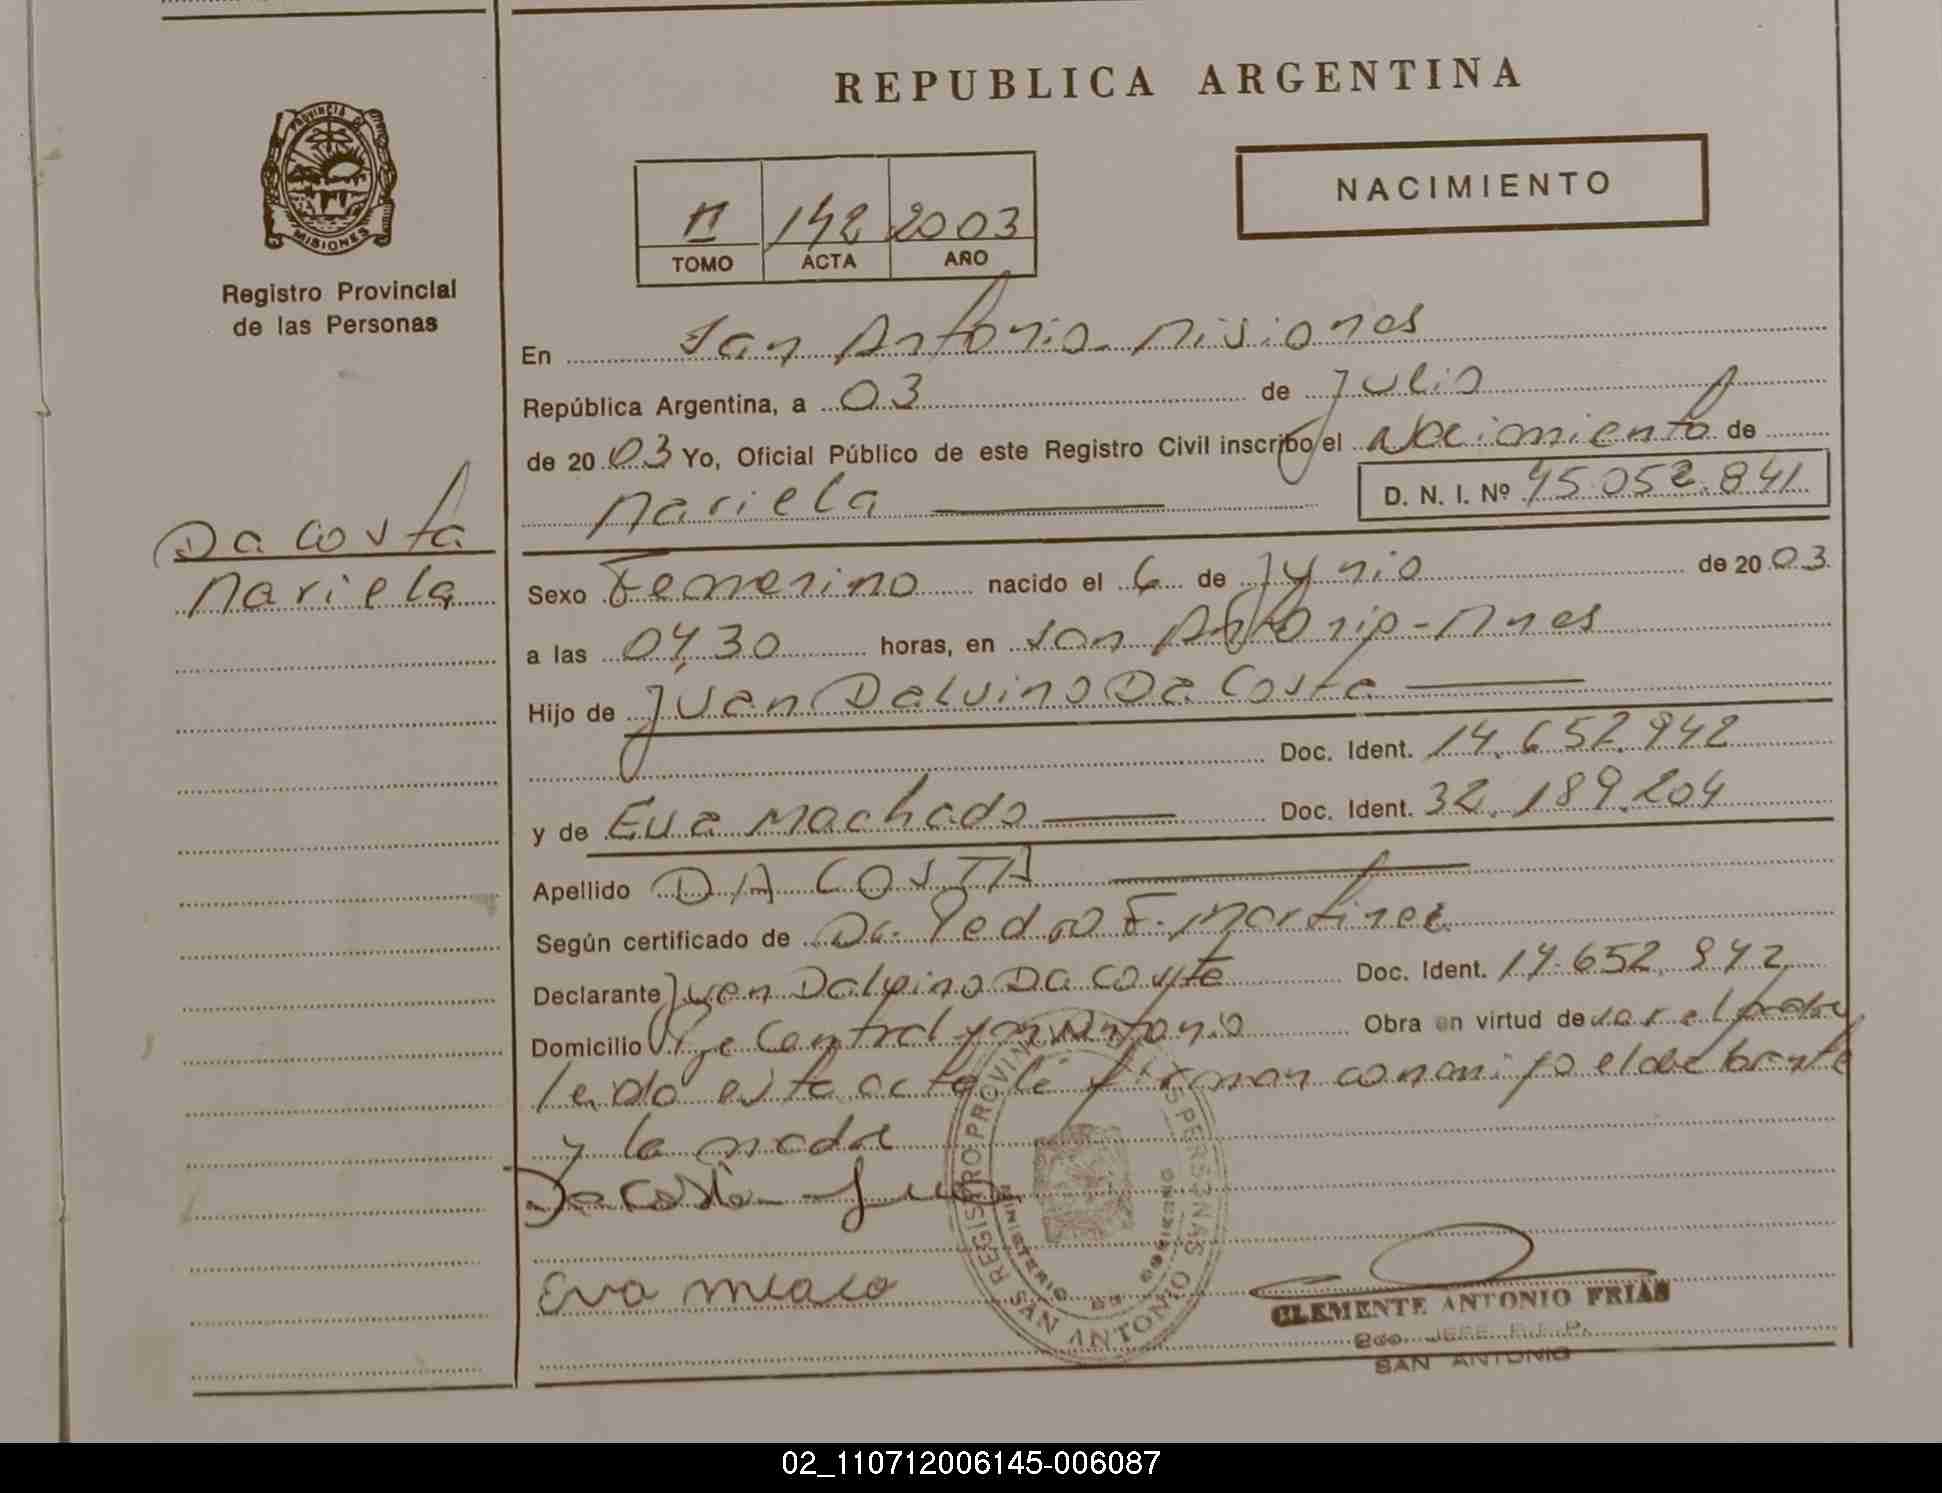 REPUBLICA ARGENTINA
PROVINCIA DE
MISIONES
Registro Provincial
de las Personas
II 142 2003
TOMO ACTA AÑO
NACIMIENTO
En San Antonio Misiones
República Argentina, a 03 de Julio
de 2003 Yo, Oficial Público de este Registro Civil inscribo el Nacimiento de
Mariela D. N. I. Nº 45.052.841
Da Costa
Mariela
Sexo Femenino nacido el 6 de Junio de 2003
a las 04,30 horas, en San Antonio - Mnes
Hijo de Juan Dalvino Da Costa
Doc. Ident. 14.652.942
y de Eva Machado Doc. Ident. 32.189.204
Apellido DA COSTA
Según certificado de Dr. Pedro F. Martinez
Declarante Juan Dalvino Da Costa Doc. Ident. 14.652.942
Domicilio Central San Antonio Obra en virtud de ser el padre
leido este acta la firman conmigo el declarante
y la madre
Da Costa
Eva
REGISTRO PROVINCIAL DE LAS PERSONAS
MINISTERIO DE GOBIERNO
SAN ANTONIO
CLEMENTE ANTONIO FRIAS
JEFE R.P.P.
SAN ANTONIO
02_110712006145-006087